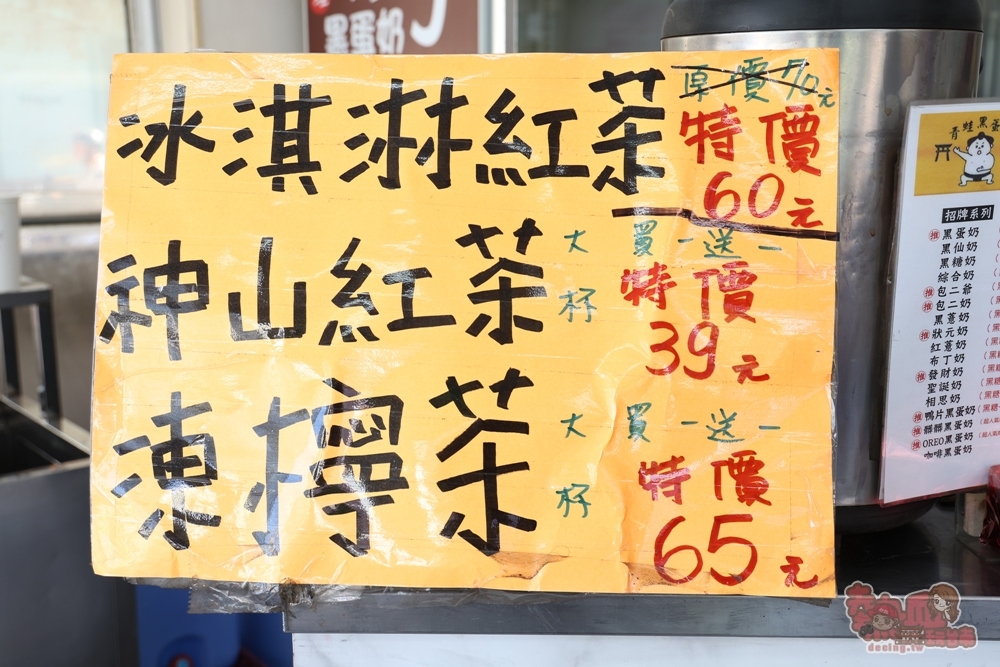 黑蛋奶
冰淇淋紅茶
原價70元
特價
60元
神山紅茶
大杯
買一送一
特價
39元
凍檸茶
大杯
買一送一
特價
65元
青蛙黑蛋
招牌系列
推 黑蛋奶
黑仙奶
黑糖奶
綜合奶
推 包二爺
推 包二奶
黑薏奶
推 狀元奶
紅薏奶
布丁奶
推 發財奶
聖誕奶
相思奶
推 鴨片黑蛋奶
推 髒髒黑蛋奶
推 OREO黑蛋奶
咖啡黑蛋奶
decing.tw